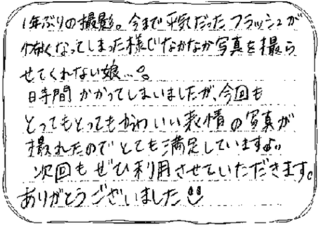 1年ぶりの撮影。今まで平気だったフラッシュが
怖くなってしまった様でなかなか写真を撮ら
せてくれない娘…。
時間かかってしまいましたが、今回も
とってもとってもかわいい表情の写真が
撮れたのでとても満足しています♪
次回もぜひ利用させていただきます。
ありがとうございました